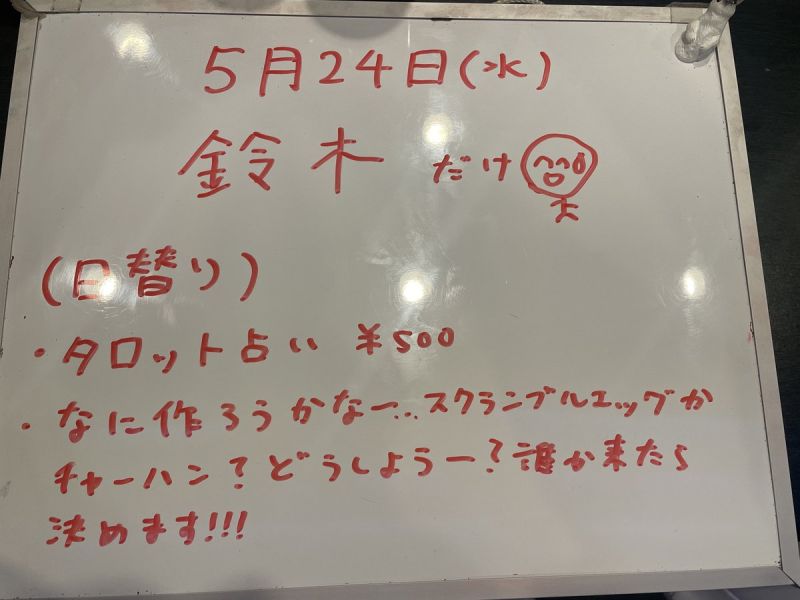 5月24日(水)
鈴木 だけ
(日替り)
・タロット占い ¥500
・なに作ろうかなー...スクランブルエッグか
チャーハン?どうしようー?誰か来たら
決めます!!!